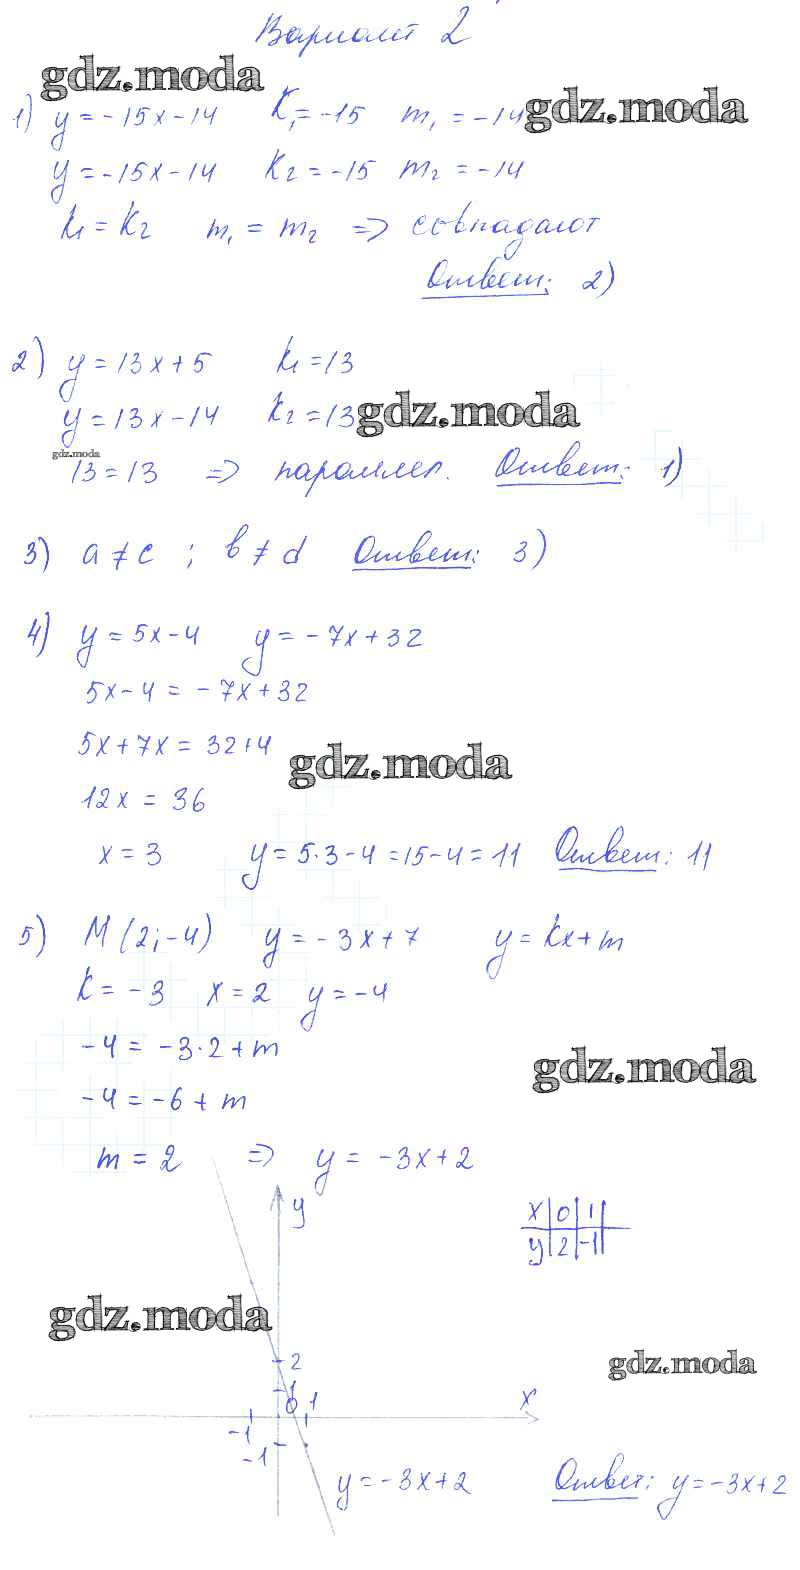 Вариант 2
gdz.moda
1) y = -15x - 14 K₁ = -15 m₁ = -14 gdz.moda
y = -15x - 14 K₂ = -15 m₂ = -14
k₁ = k₂ m₁ = m₂ => совпадают
Ответ: 2)
2) y = 13x + 5 k₁ = 13
y = 13x - 14 K₂ = 13 gdz.moda
gdz.moda
13 = 13 => параллел. Ответ: 1)
3) a ≠ c ; b ≠ d Ответ: 3)
4) y = 5x - 4 y = -7x + 32
5x - 4 = -7x + 32
5x + 7x = 32 + 4
gdz.moda
12x = 36
x = 3 y = 5·3 - 4 = 15 - 4 = 11 Ответ: 11
5) M (2; -4) y = -3x + 7 y = kx + m
k = -3 x = 2 y = -4
-4 = -3·2 + m
gdz.moda
-4 = -6 + m
m = 2 => y = -3x + 2
y
x 0 1
y 2 -1
gdz.moda
2
gdz.moda
1
0 1 x
-1
-1
y = -3x + 2 Ответ: y = -3x + 2